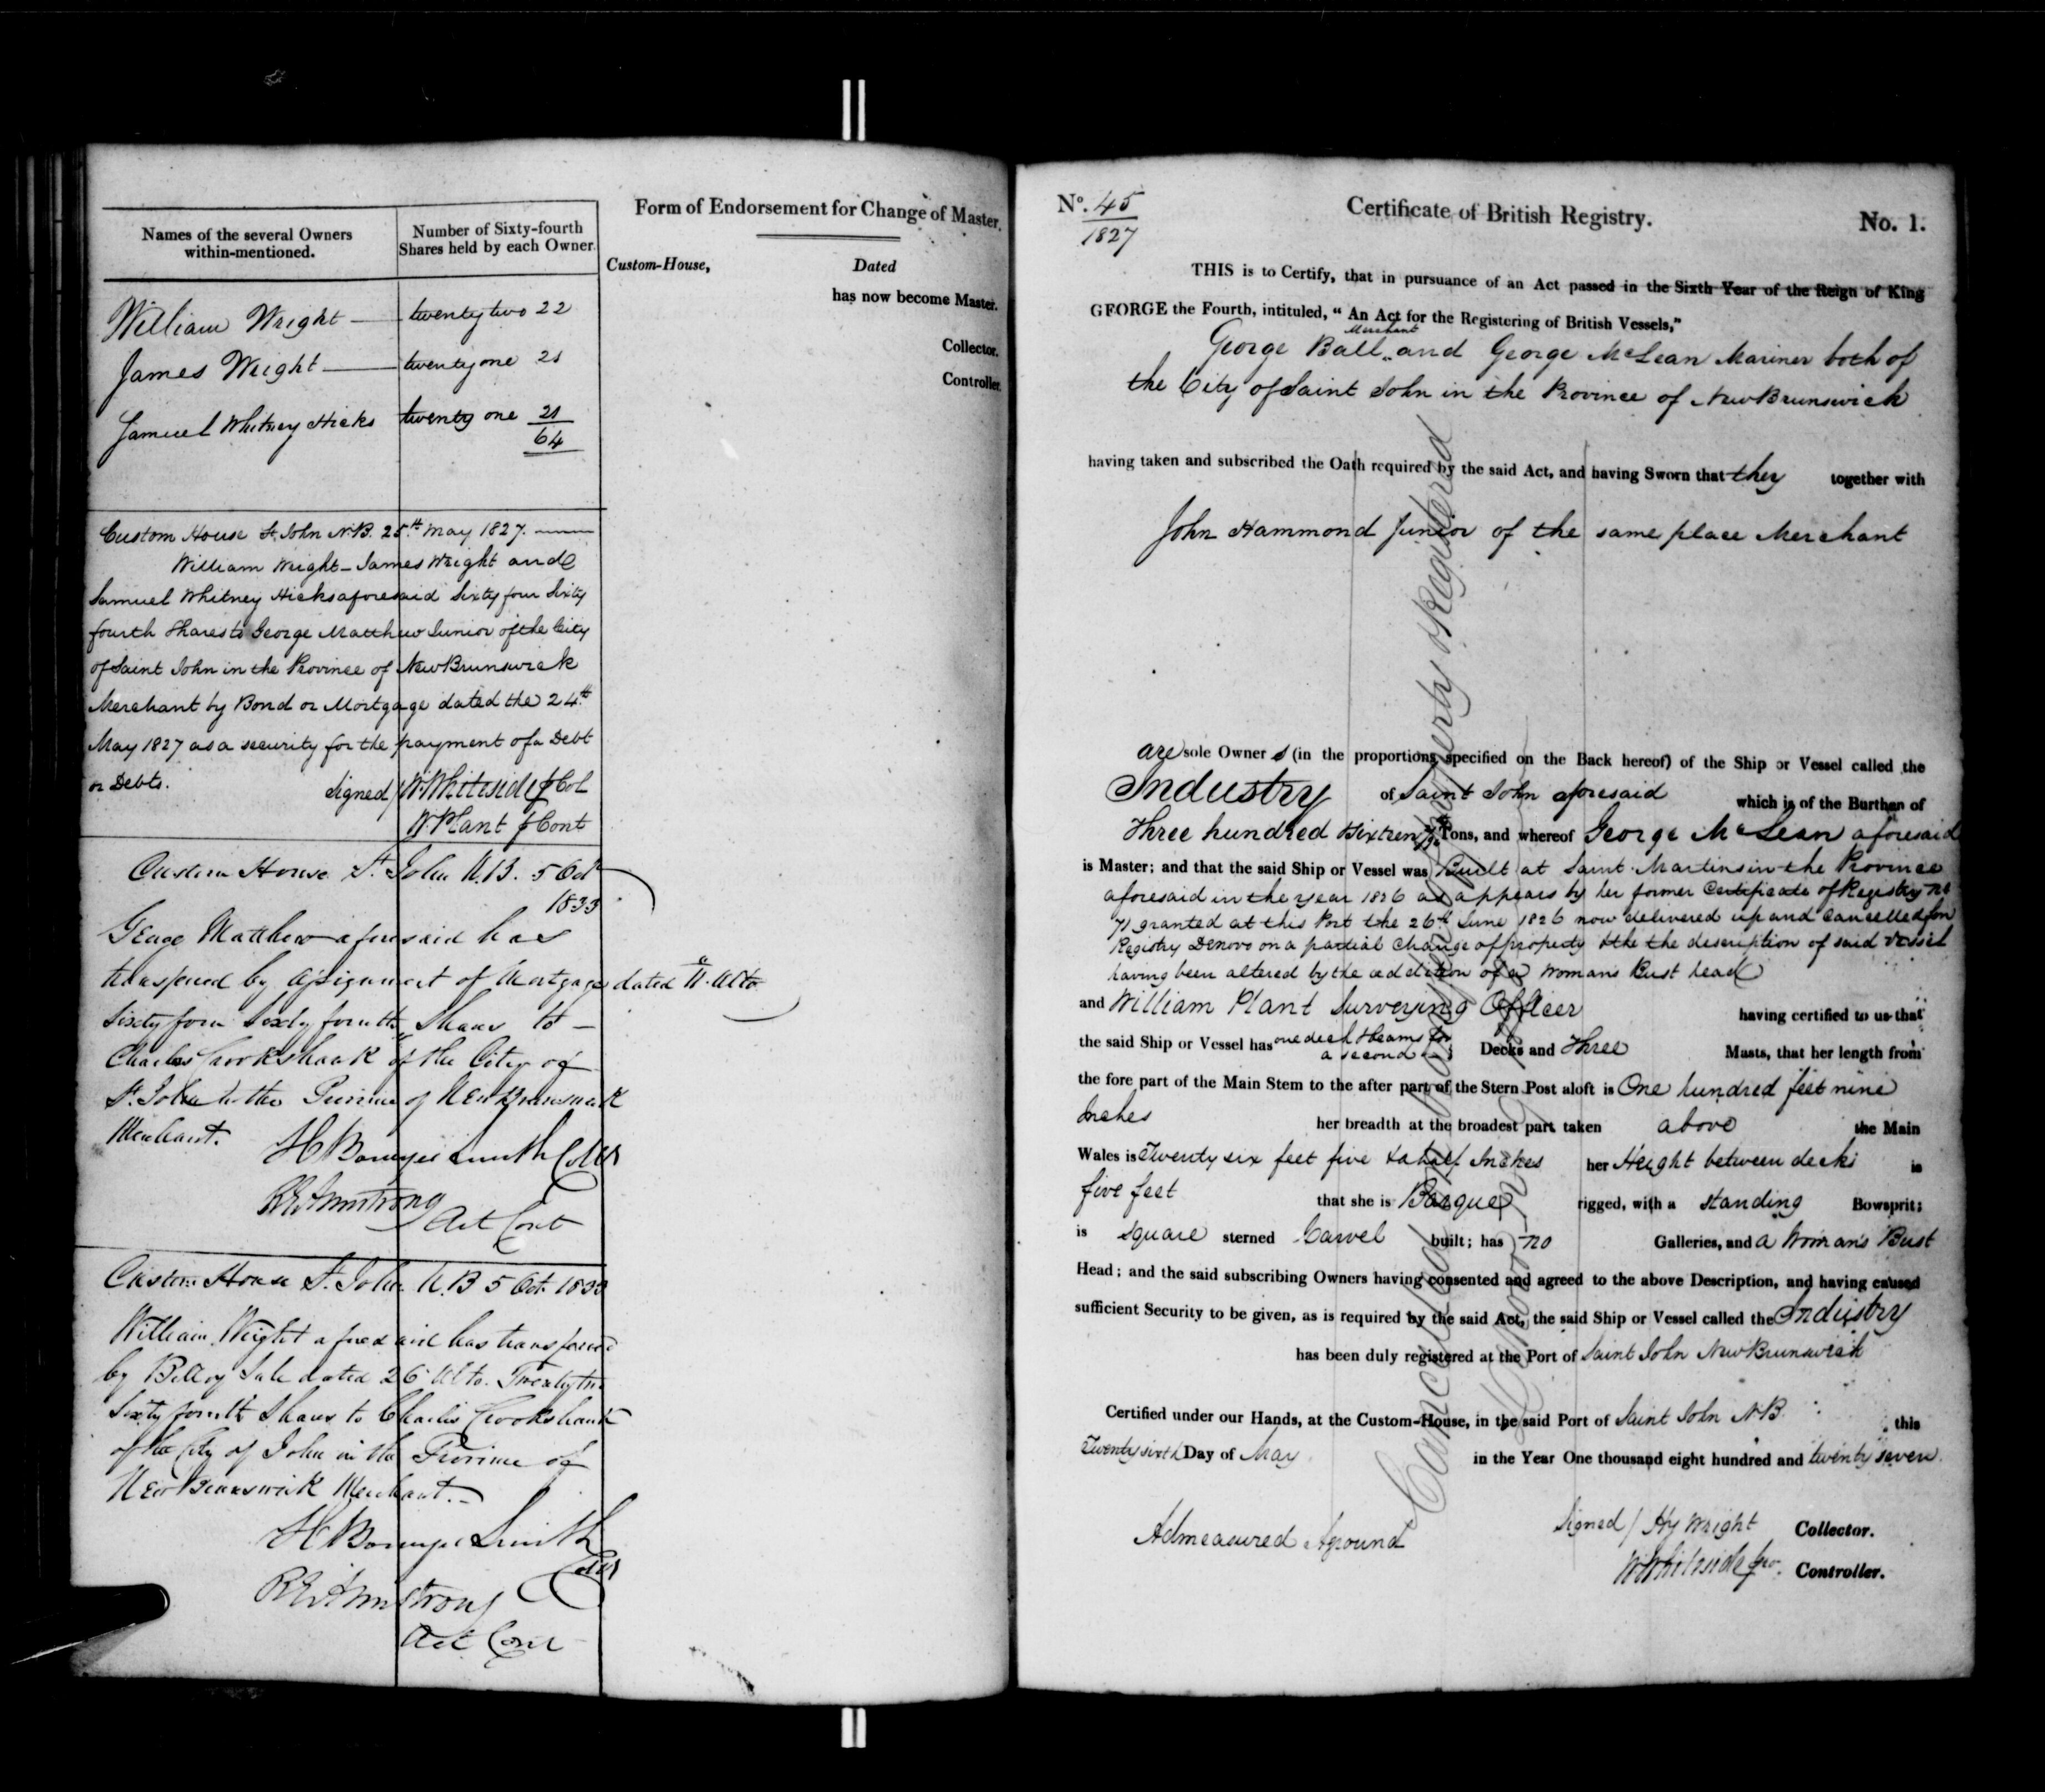 Names of the several Owners
within-mentioned.
Number of Sixty-fourth
Shares held by each Owner.
William Wright — twenty two 22
James Wright — twenty one 21
Samuel Whitney Hicks twenty one 21
64
Custom House St. John N.B. 25th May 1827.
William Wright - James Wright and
Samuel Whitney Hicks aforesaid Sixty four Sixty
fourth Shares to George Matthew Junior of the City
of Saint John in the Province of New Brunswick
Merchant by Bond or Mortgage dated the 24th
May 1827 as a security for the payment of a Debt
or Debts. Signed / W. Whiteside Col
W. Plant Cont
Custom House St. John N.B. 5 Oct
1833
George Matthew aforesaid has
transferred by Assignment of Mortgage dated Ulto
Sixty four Sixty fourth Shares to —
Charles Crookshank of the City of
St. John in the Province of New Brunswick
Merchant.
H Bowyer Smith Collr
R E Armstrong
Act Cont
Custom House St. John N.B 5 Oct 1833
William Wright aforesaid has transferred
by Bill of Sale dated 26 Ulto. Twenty two
Sixty fourth Shares to Charles Crookshank
of the City of John in the Province of
New Brunswick Merchant. —
H Bowyer Smith
Collr
R E Armstrong
Act Cont
Form of Endorsement for Change of Master.
Custom-House, Dated
has now become Master.
Collector.
Controller.
No. 45
1827
Certificate of British Registry.
No. 1.
THIS is to Certify, that in pursuance of an Act passed in the Sixth Year of the Reign of King
GEORGE the Fourth, intituled, "An Act for the Registering of British Vessels,"
Merchant
George Ball and George McLean Mariner both of
the City of Saint John in the Province of New Brunswick
having taken and subscribed the Oath required by the said Act, and having Sworn that they together with
John Hammond Junior of the same place Merchant
are sole Owner s (in the proportions specified on the Back hereof) of the Ship or Vessel called the
Industry of Saint John aforesaid which is of the Burthen of
Three hundred Sixteen Tons, and whereof George McLean aforesaid
is Master; and that the said Ship or Vessel was Built at Saint Martins in the Province
aforesaid in the year 1826 as appears by her former Certificate of Registry No
71 granted at this Port the 26th June 1826 now delivered up and Cancelled for
Registry Denovo on a partial change of property & the the description of said Vessel
having been altered by the addition of a Womans Bust head
and William Plant Surveying Officer having certified to us that
the said Ship or Vessel has one deck & beams for
a second Decks and Three Masts, that her length from
the fore part of the Main Stem to the after part of the Stern Post aloft is One hundred feet nine
Inches her breadth at the broadest part taken above the Main
Wales is Twenty six feet five & a half Inches her Height between decks is
five feet that she is Barque rigged, with a standing Bowsprit;
is square sterned Carvel built; has no Galleries, and a Woman's Bust
Head; and the said subscribing Owners having consented and agreed to the above Description, and having caused
sufficient Security to be given, as is required by the said Act, the said Ship or Vessel called the Industry
has been duly registered at the Port of Saint John New Brunswick
Certified under our Hands, at the Custom-House, in the said Port of Saint John N.B. this
Twenty sixth Day of May in the Year One thousand eight hundred and twenty seven.
Admeasured Aground
Signed / Hy Wright Collector.
W Whiteside Controller.
Registered
Cancelled